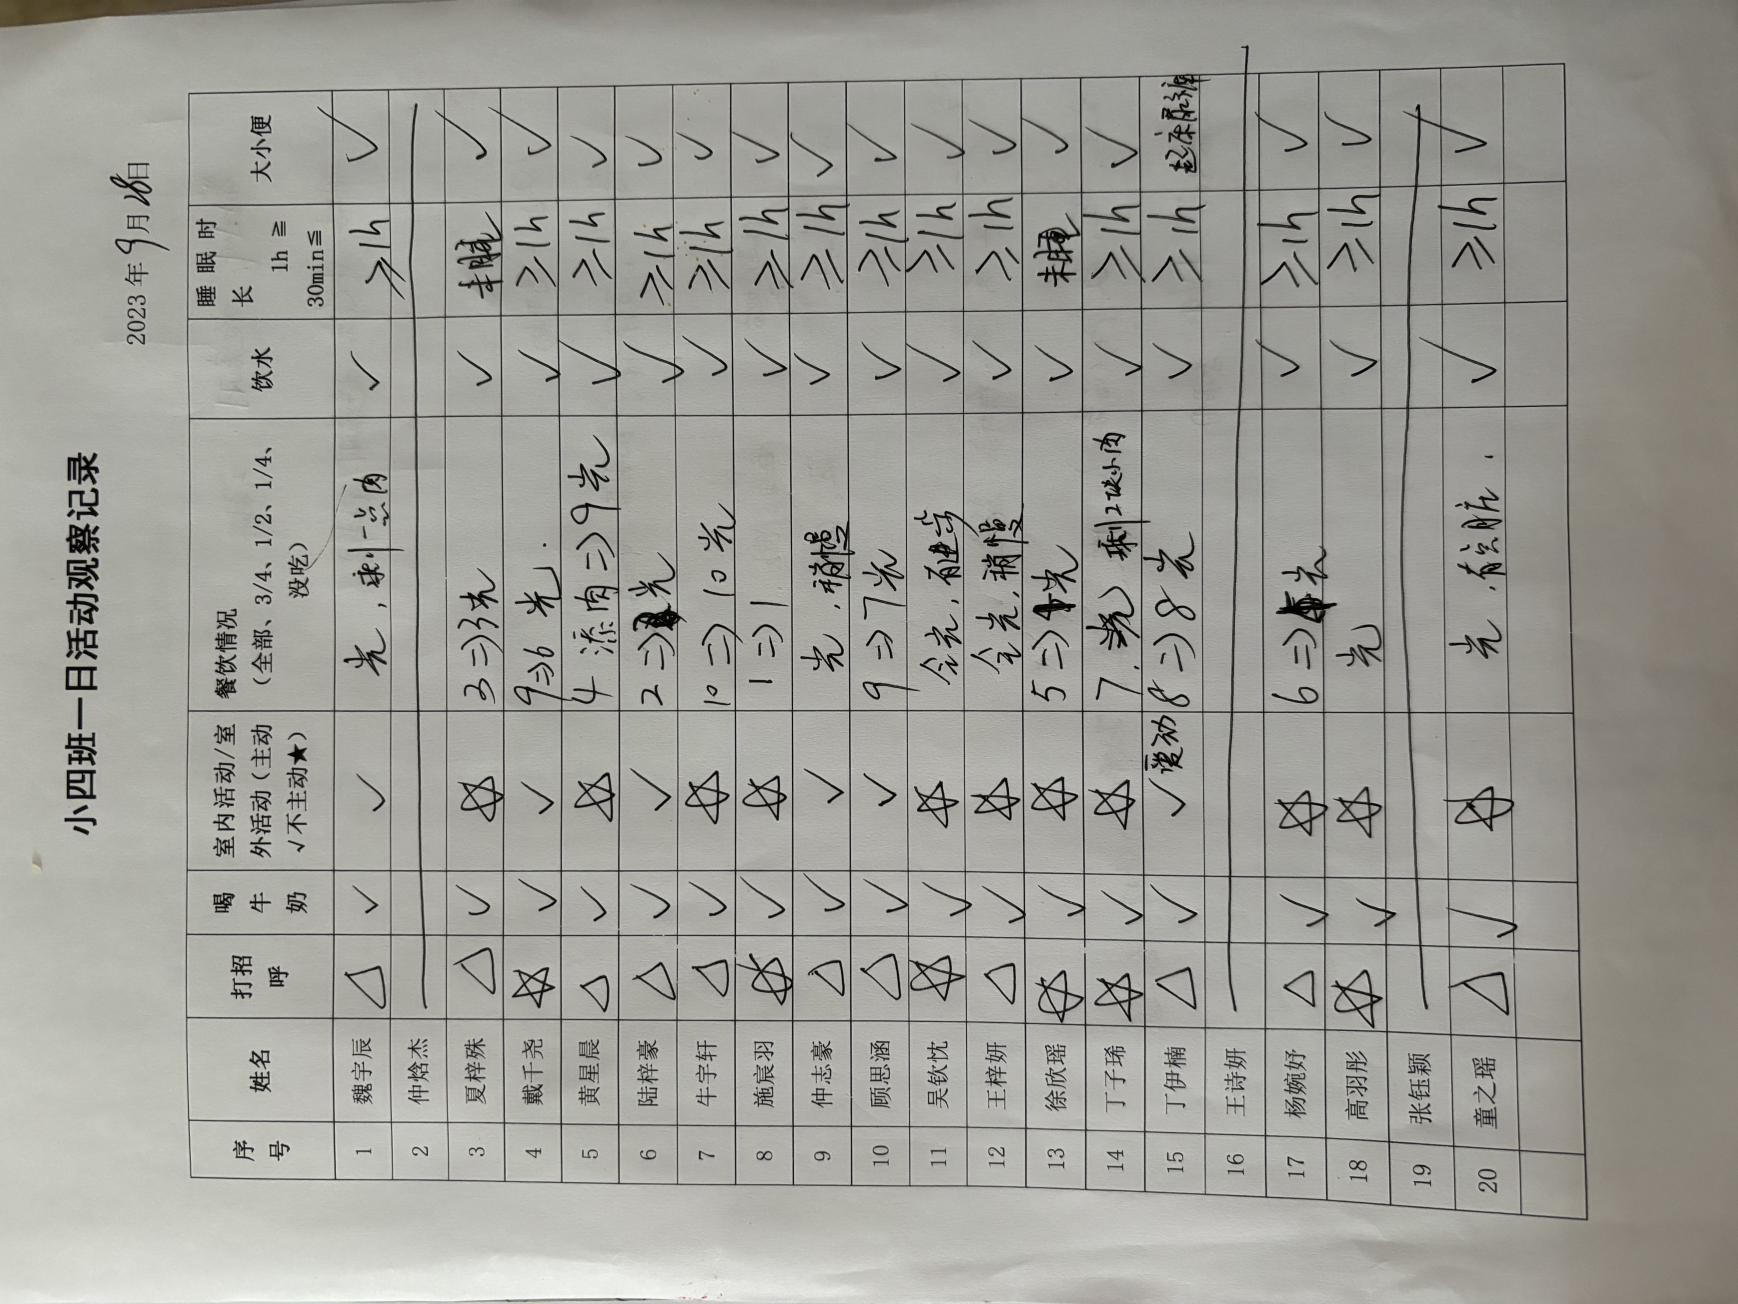 小四班一日活动观察记录
2023 年 9 月 28 日
序号 姓名 打招呼 喝牛奶 室内活动/室外活动（主动√不主动★） 餐饮情况（全部、3/4、1/2、1/4、没吃） 饮水 睡眠时长 1h ≧ 30min≦ 大小便
1 魏宇辰 △ √ √ 光，剩一点肉 √ ≥1h √
2 仲焓杰
3 夏梓殊 △ √ ☆ 3⇒3光 √ 未睡 √
4 戴千尧 ☆ √ √ 9⇒6光. √ ≥1h √
5 黄星晨 △ √ ☆ 4 添肉⇒9光 √ ≥1h √
6 陆梓豪 △ √ √ 2⇒光 √ ≥1h √
7 牛宇轩 △ √ ☆ 10⇒10光 √ ≥1h √
8 施宸羽 ☆ √ ☆ 1⇒1 √ ≥1h √
9 仲志豪 △ √ √ 光，稍慢 √ ≥1h √
10 顾思涵 △ √ √ 9⇒7光 √ ≥1h √
11 吴钦忱 ☆ √ ☆ 全光，有进步 √ ≥1h √
12 王梓妍 △ √ ☆ 全光，稍慢 √ ≥1h √
13 徐欣瑶 ☆ √ ☆ 5⇒光 √ 未睡 √
14 丁子琋 ☆ √ ☆ 7. 光 剩2块小肉 √ ≥1h √
15 丁伊楠 △ √ √ 爱动 8⇒8光 √ ≥1h 起床尿裤
16 王诗妍
17 杨婉妤 △ √ ☆ 6⇒光 √ ≥1h √
18 高羽彤 ☆ √ ☆ 光 √ ≥1h √
19 张钰颖
20 童之瑶 △ √ ☆ 光，有点脏. √ ≥1h √